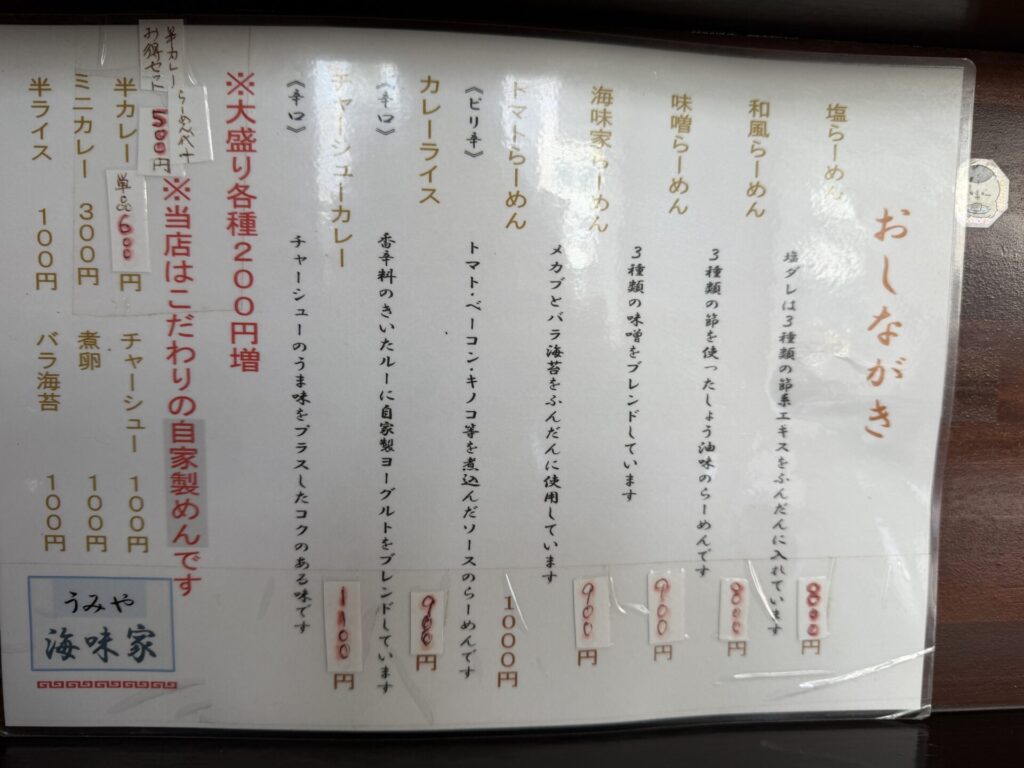 おしながき
塩らーめん
塩ダレは3種類の節系エキスをふんだんに入れています
800円
和風らーめん
3種類の節を使ったしょう油味のらーめんです
800円
味噌らーめん
3種類の味噌をブレンドしています
900円
海味家らーめん
メカブとバラ海苔をふんだんに使用しています
900円
トマトらーめん
《ピリ辛》
トマト・ベーコン・キノコ等を煮込んだソースのらーめんです
1000円
カレーライス
《辛口》
香辛料のきいたルーに自家製ヨーグルトをブレンドしています
900円
チャーシューカレー
《辛口》
チャーシューのうま味をプラスしたコクのある味です
1100円
※大盛り各種200円増
※当店はこだわりの自家製めんです
半カレーらーめん代+
お得セット 500円
半カレー 単品600円
ミニカレー 300円
半ライス 100円
チャーシュー 100円
煮卵 100円
バラ海苔 100円
うみや
海味家